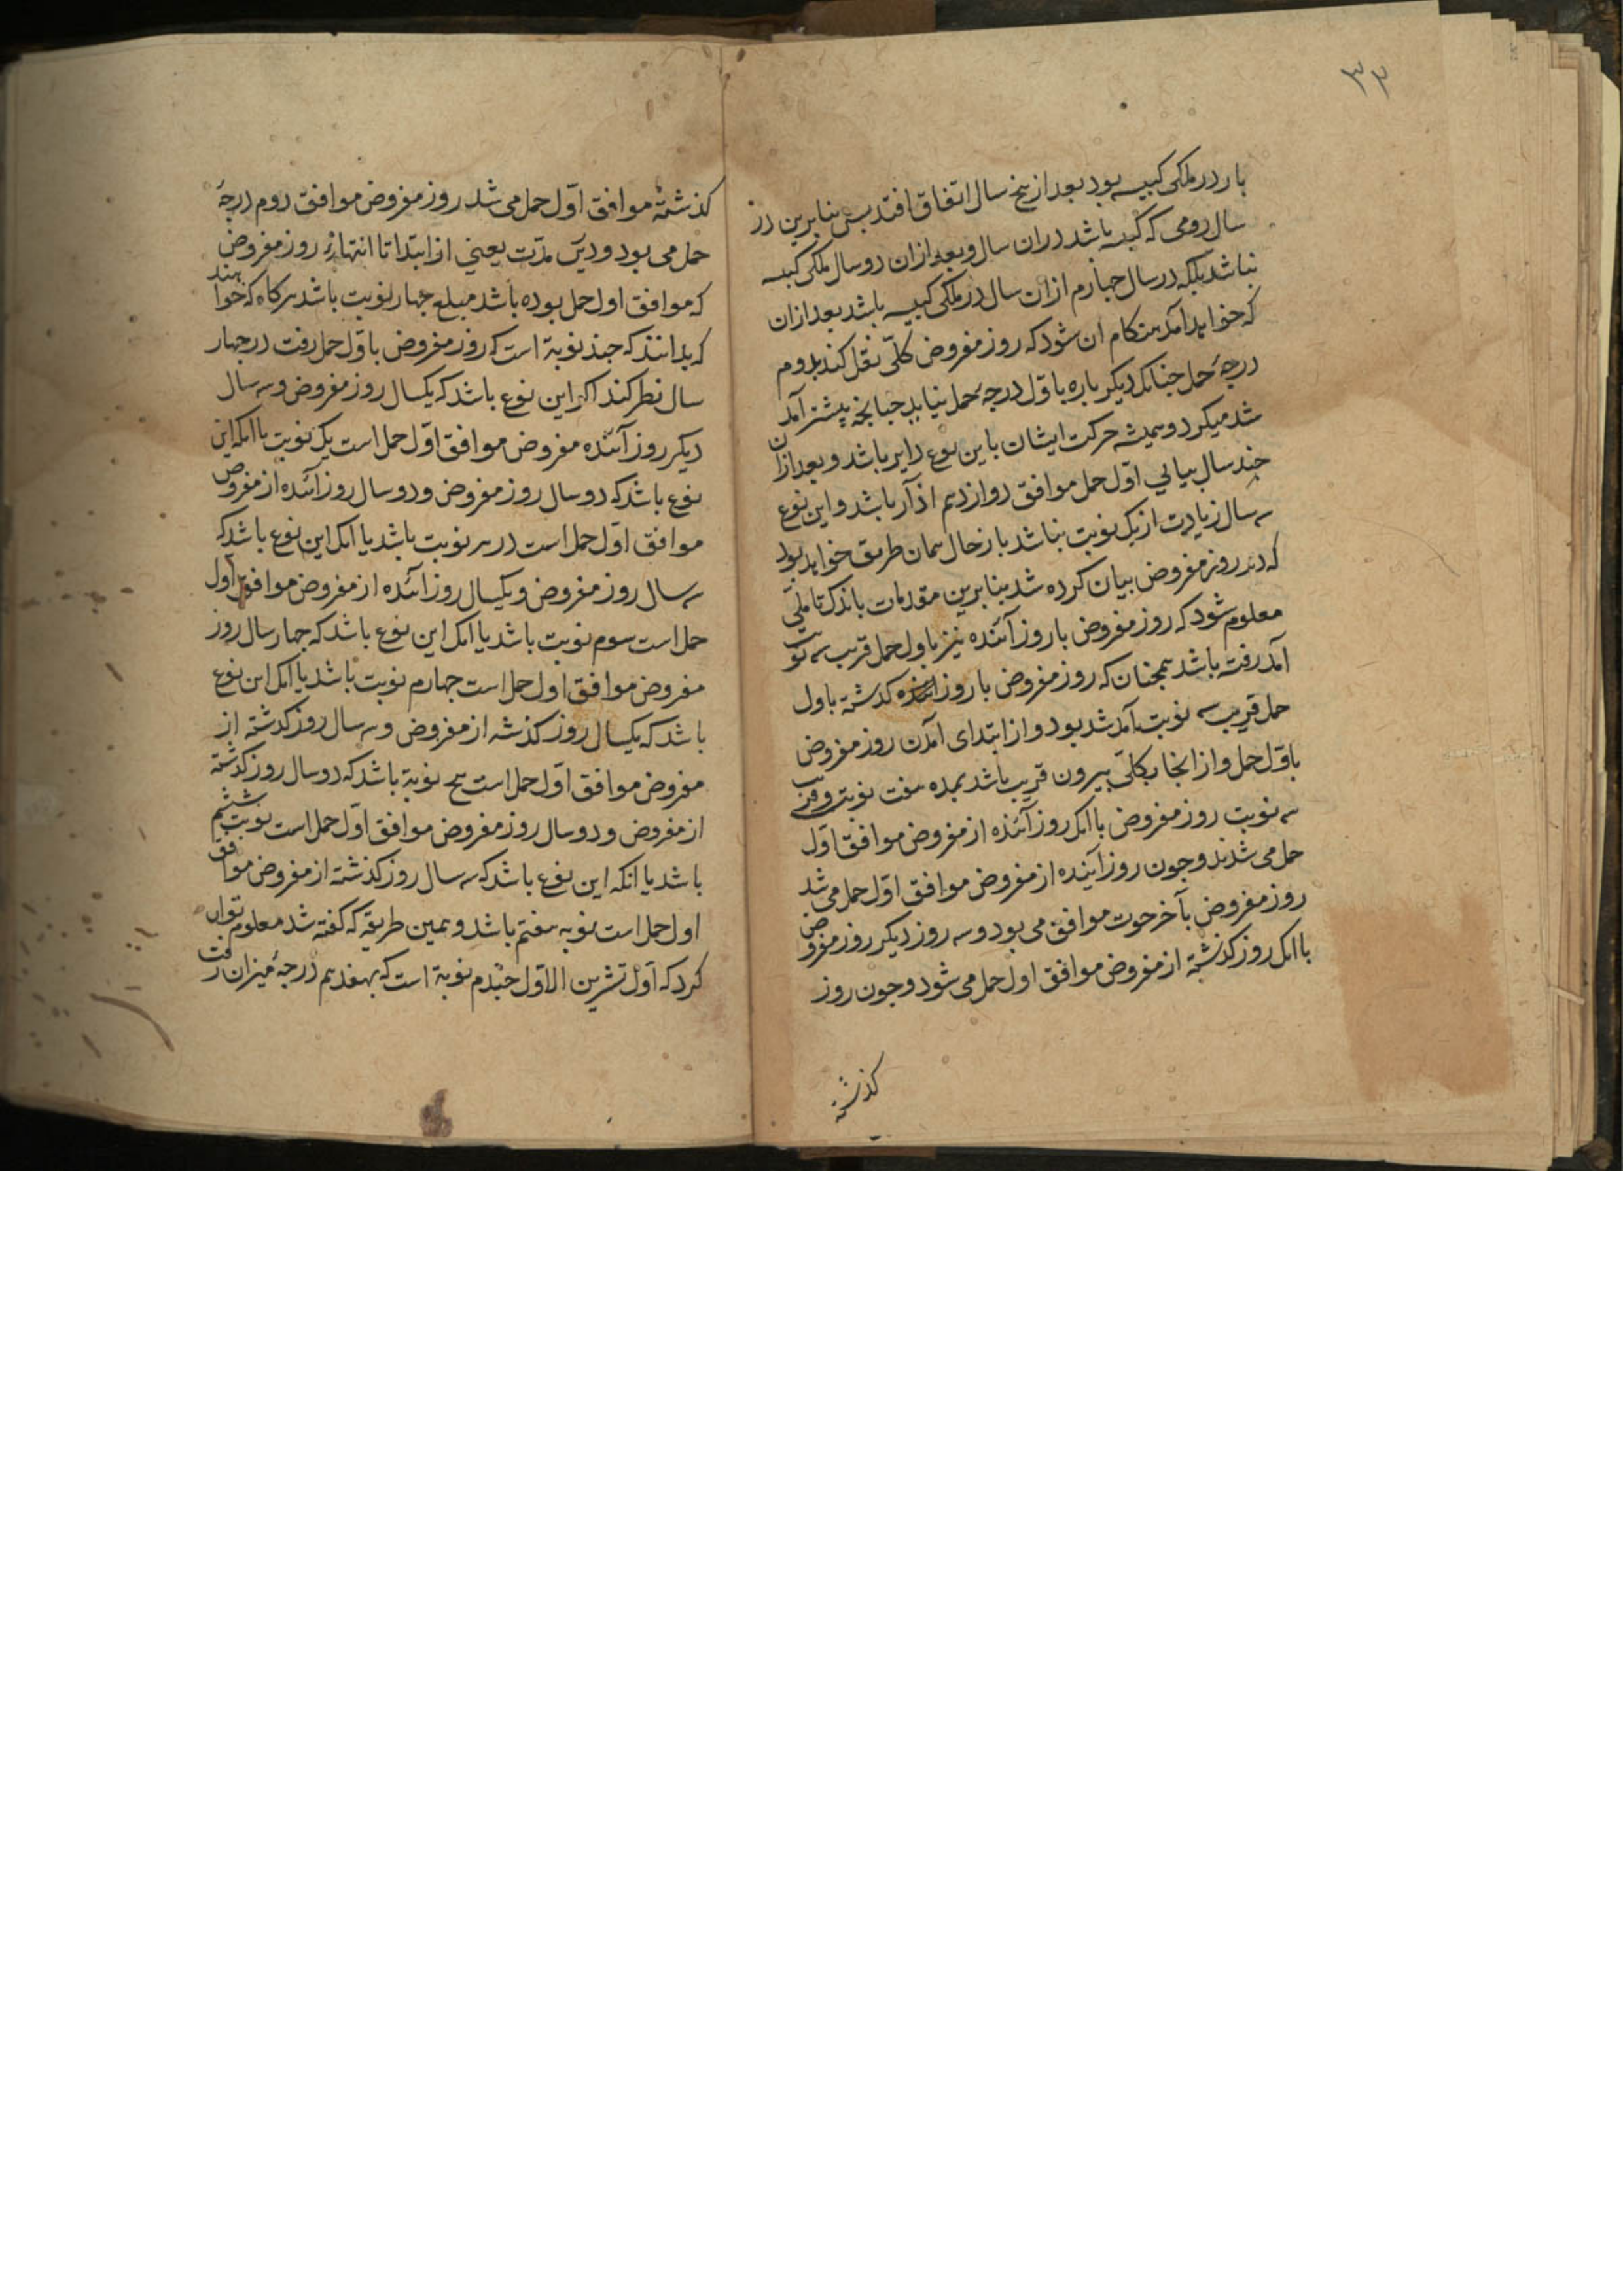 ۳۳
بار در ملکی کبیسه بود بعد از پنج سال اتفاق افتد پس بنابرین در
سال رومی که کبیسه باشد در ان سال و بعد از ان دو سال ملکی کبیسه
نباشد بلکه در سال جهارم از ان سال در ملکی کبیسه باشد بعد از ان
که خواهد آمد هنکام ان شود که روز مفروض کلّی نقل کند بدوم
درجهٔ حمل جنانک دیکر باره باوّل درجهٔ حمل نیاید جنانجه پیشتر آمد
شد میکرد و همیشه حرکت ایشان باین نوع دایر باشد و بعد از ان
جند سال بیابی اوّل حمل موافق دوازدهم اذار باشد و این نوع
سه سال زیادت از یک نوبت نباشد باز حال همان طریق خواهد بود
که در روز مفروض بیان کرده شد بنابرین مقدمات باندک تاملی
معلوم شود که روز مفروض با روز آینده نیز باول حمل قریب سه نوبت
آمد رفته باشد همجنان که روز مفروض با روز کذشته باول
حمل قریب سه نوبت آمد شد بود و از ابتدای آمدن روز مفروض
باوّل حمل و از انجا بکلّی بیرون قریب باشد بمده هفت نوبت و قرب
سه نوبت روز مفروض با انک روز آینده از مفروض موافق اوّل
حمل می شدند و جون روز آینده از مفروض موافق اوّل حمل می شد
روز مفروض بآخر حوت موافق می بود و سه روز دیکر روز مفروض
با انک روز کذشته از مفروض موافق اول حمل می شود و جون روز
کذشته
کذشته موافق اوّل حمل می شد روز مفروض موافق دوم درجهٔ
حمل می بود و درین مدّت یعنی از ابتدا تا انتها روز مفروض
که موافق اول حمل بوده باشد مبلغ جهار نوبت باشد هرکاه که خواهند
که بدانند که جند نوبة است که روز مفروض باوّل حمل رفت در جهار
سال نظر کند اکر این نوع باشد که یکسال روز مفروض و سه سال
دیکر روز آینده مفروض موافق اوّل حمل است یک نوبت یا انکه این
نوع باشد که دو سال روز مفروض و دو سال روز آینده از مفروض
موافق اوّل حمل است در هر نوبت باشد یا انک این نوع باشد که
سه سال روز مفروض و یکسال روز آینده از مفروض موافق اول
حمل است سوم نوبت باشد یا انک این نوع باشد که جهار سال روز
مفروض موافق اول حمل است جهارم نوبت باشد یا انک این نوع
باشد که یکسال روز کذشته از مفروض و سه سال روز کذشته از
مفروض موافق اوّل حمل است پنج نوبة باشد که دو سال روز کذشته
از مفروض و دو سال روز مفروض موافق اوّل حمل است نوبت ششم
باشد یا انکه این نوع باشد که سه سال روز کذشته از مفروض موافق
اول حمل است نوبه هفتم باشد و بهمین طریقه که کفته شد معلوم توان
کرد که اوّل تشرین الاوّل جندم نوبة است که بهفدهم درجهٔ میزان رفت